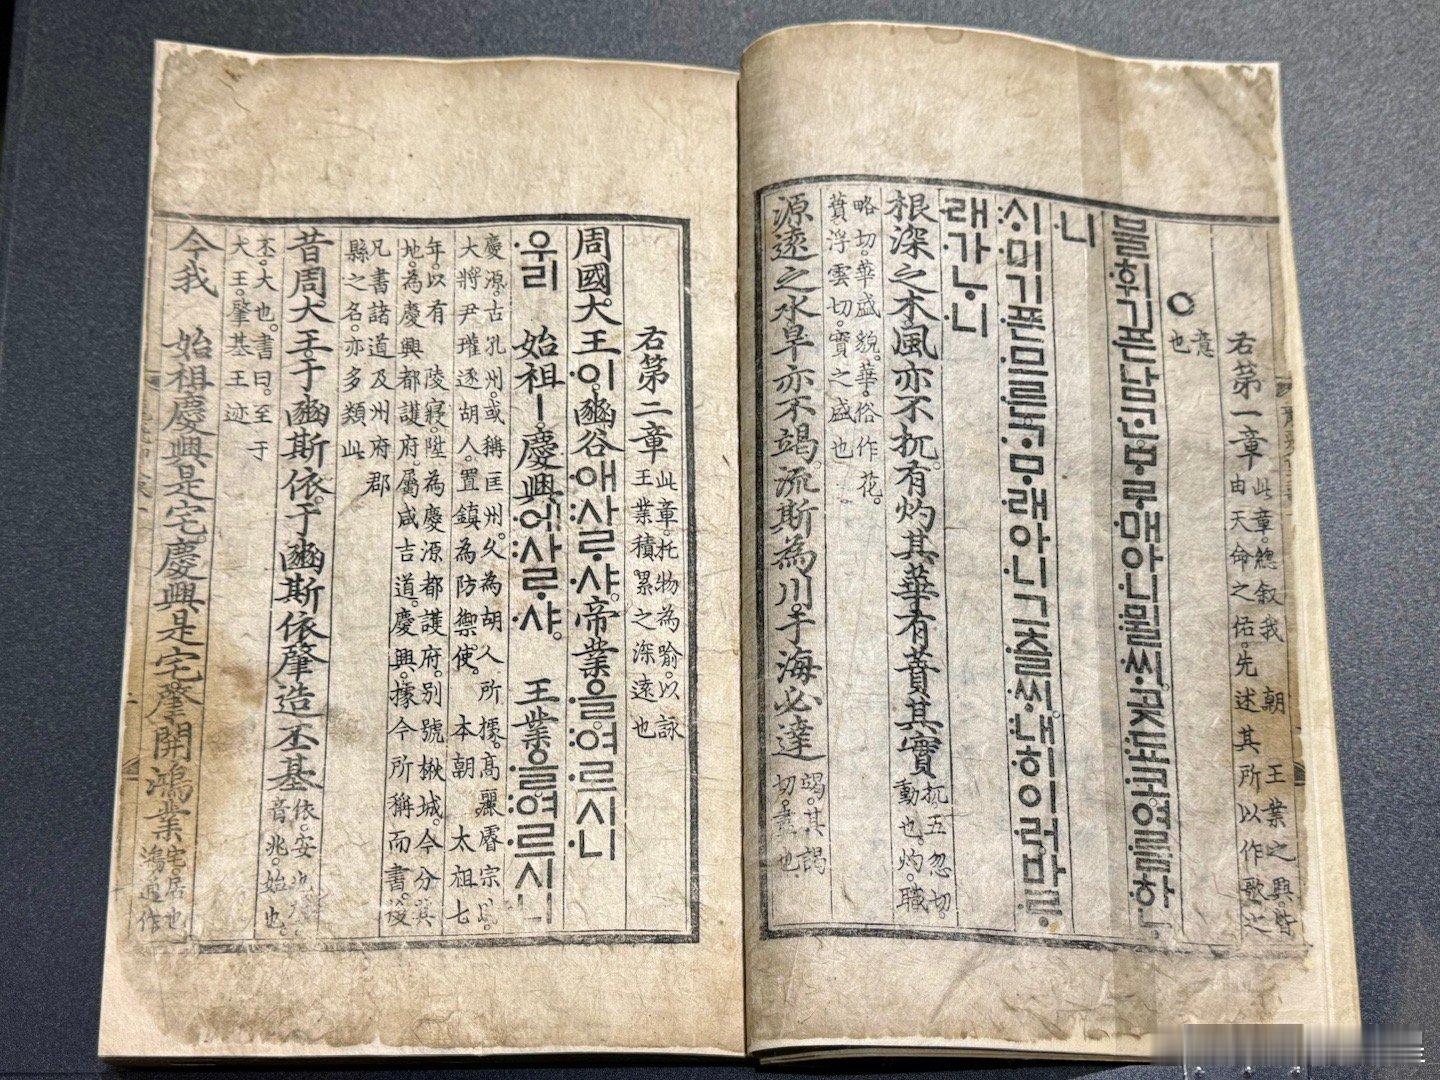 右第一章
此章。總叙我 朝 王業之興。皆
由天命之佑。先述其所以作歌之
意
也
불휘기픈남ᄀᆞᆫᄇᆞᄅᆞ매아니뮐ᄊᆡ。곶됴코여름하ᄂᆞ
니
ᄉᆡ미기픈므른ᄀᆞᄆᆞ래아니그츨ᄊᆡ。내히이러바ᄅᆞ
래가ᄂᆞ니
根深之木風亦不扤。有灼其華有蕡其實
扤五忽切。
動也。灼。職
略切。華盛貌。華。俗作花。
蕡浮雲切。實之盛也
源遠之水旱亦不竭。流斯為川。于海必達
竭。其謁
切。盡也
右第二章
此章。托物為喩。以詠
王業積累之深遠也
周國大王이。豳谷애사ᄅᆞ샤。帝業을여르시니
우리 始祖ㅣ。慶興에사ᄅᆞ샤。 王業을여르시니
慶源。古孔州。或稱匡州。久為胡人所據。高麗睿宗以
大將尹瓘逐胡人。置鎭為防禦使。 本朝 太祖七
年。以有 陵寢。陞為慶源都護府。別號楸城。今分其
地。為慶興都護府。屬咸吉道。慶興。據今所稱而書。後
凡書諸道及州府郡
縣之名。亦多類此
昔周大王。于豳斯依。于豳斯依肇造丕基
依。安也
音兆。始也。
丕。大也。書曰。至于
大王。肇基王迹
今我 始祖慶興是宅。慶興是宅肇開鴻業
宅。居也
鴻。通作